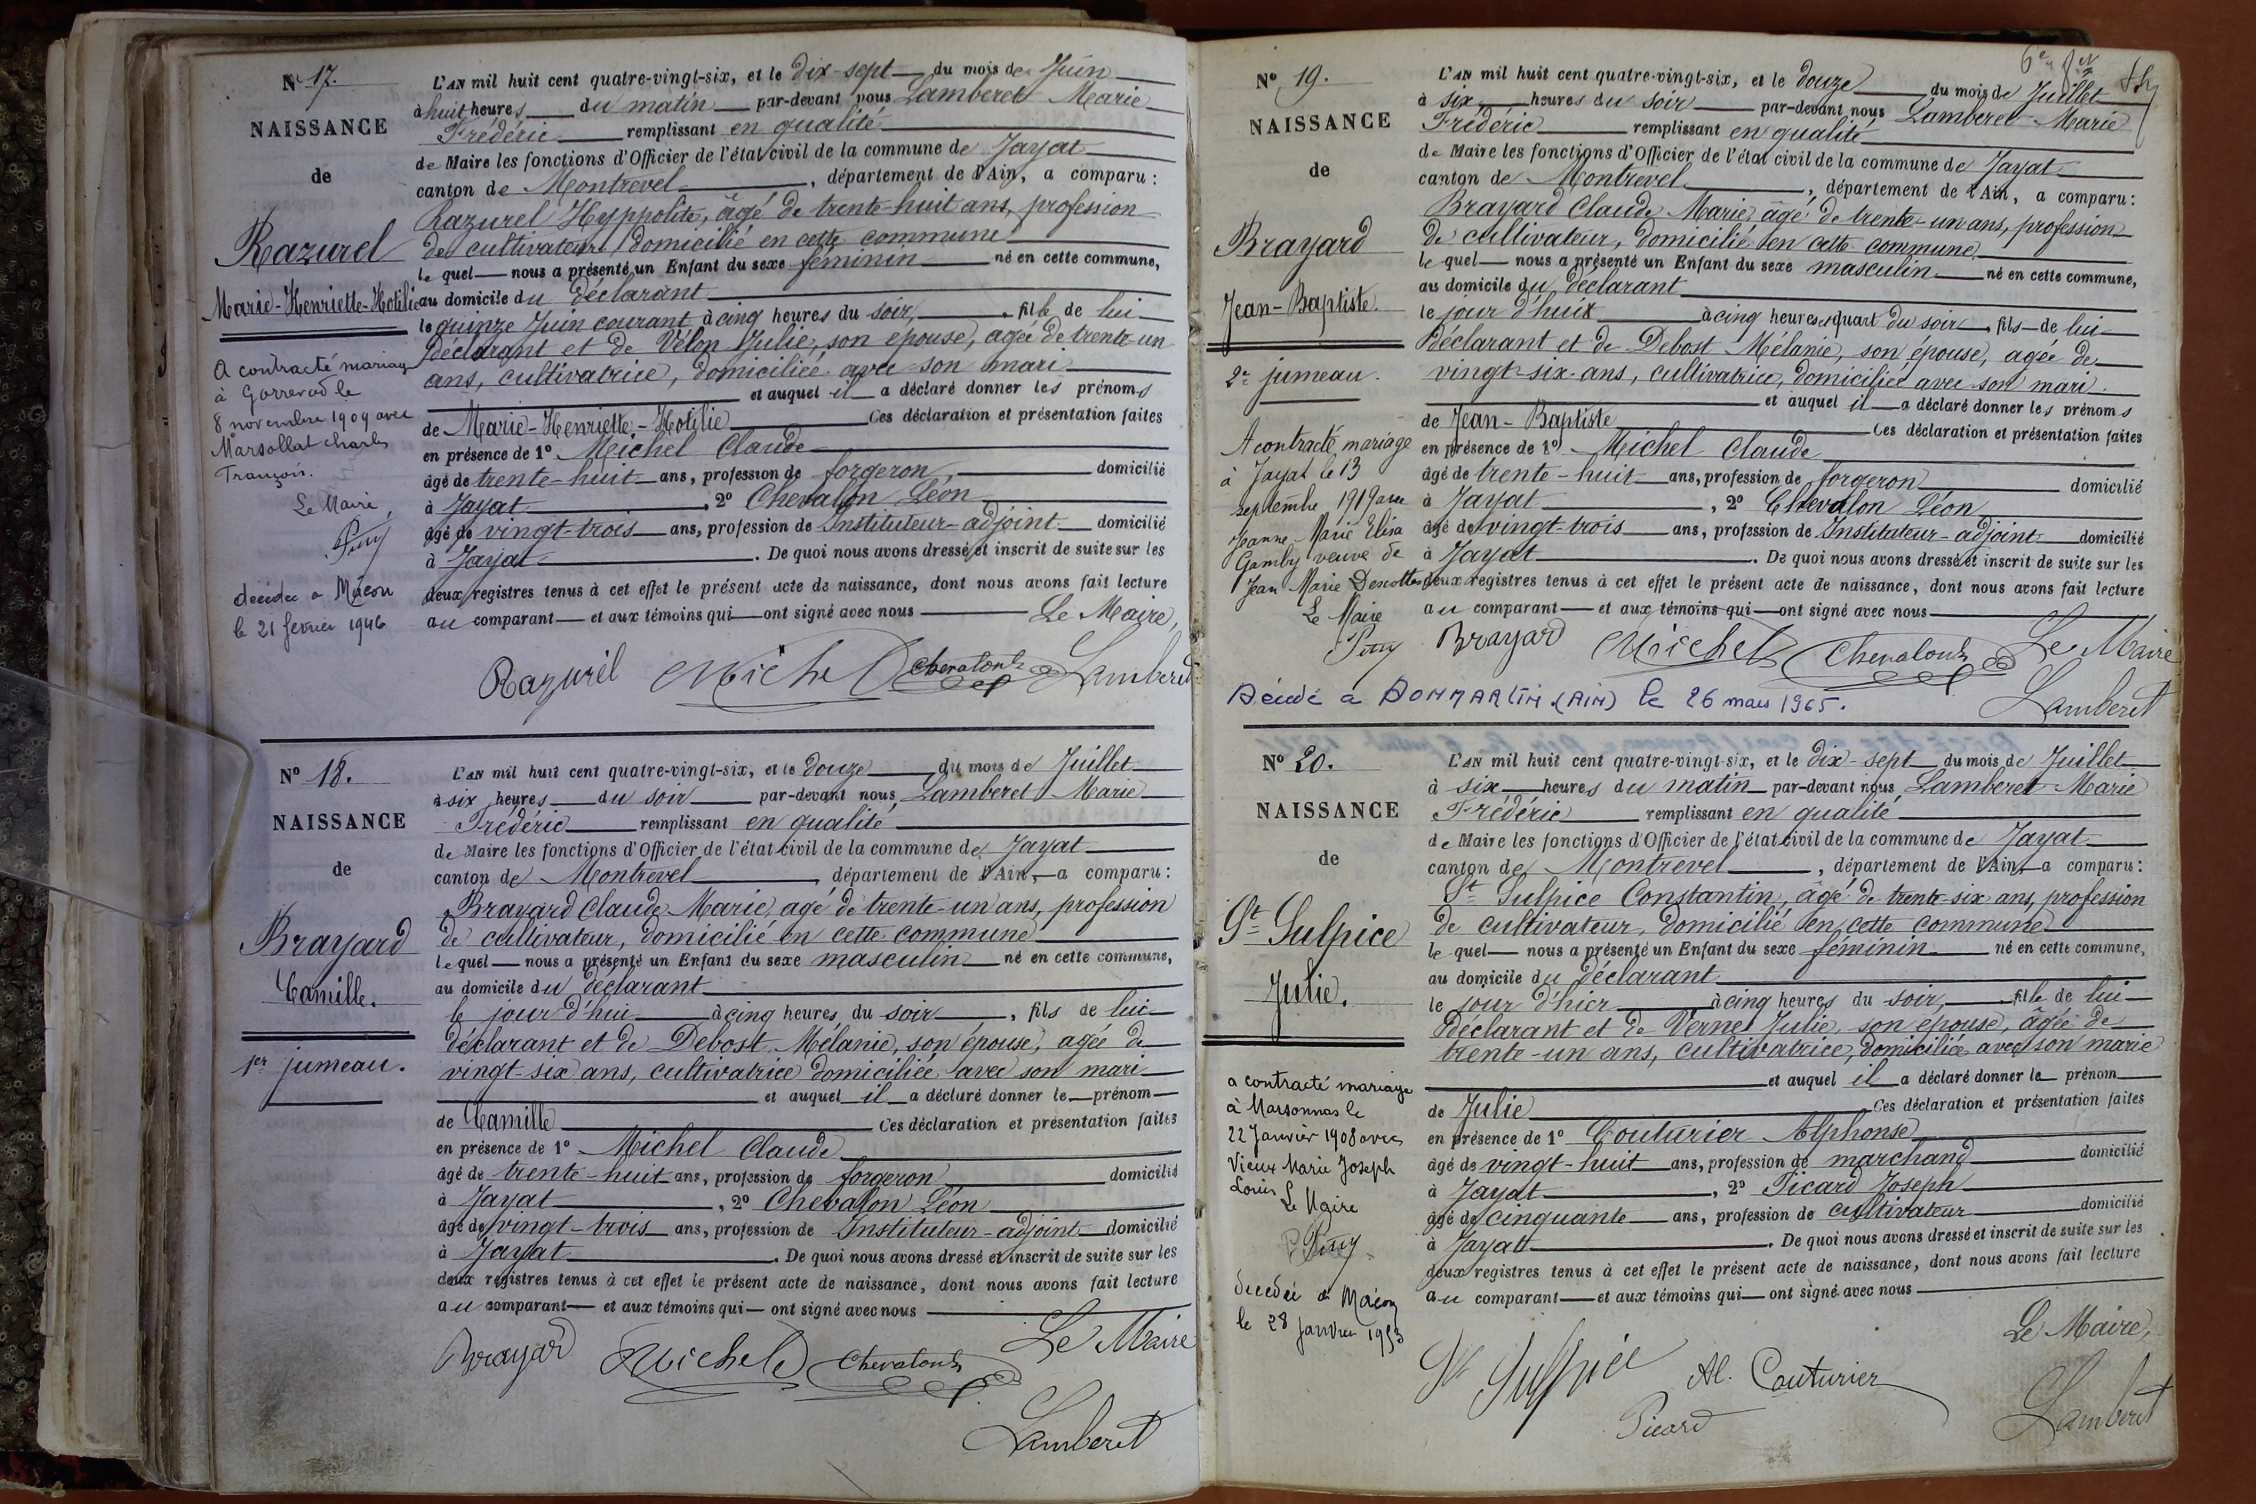 N° 17.
NAISSANCE
de
Razurel
Marie-Henriette-Hotilie
A contracté mariage
à Gorrevod le
8 novembre 1909 avec
Marsollat Charles
François.
Le Maire,
décédée à Mâcon
le 21 février 1946
L'AN mil huit cent quatre-vingt-six, et le dix-sept du mois de Juin
à huit heures du matin par-devant nous Lamberet Marie
Frédéric remplissant en qualité
de Maire les fonctions d'Officier de l'état civil de la commune de Jayat
canton de Montrevel, département de l'Ain, a comparu :
Razurel Hyppolite, âgé de trente-huit ans, profession
de cultivateur, domicilié en cette commune
le quel nous a présenté un Enfant du sexe féminin né en cette commune,
au domicile du déclarant
le quinze Juin courant à cinq heures du soir, fille de lui
déclarant et de Vélon Julie, son épouse, agée de trente-un
ans, cultivatrice, domiciliée avec son mari
et auquel il a déclaré donner les prénoms
de Marie-Henriette-Hotilie Ces déclaration et présentation faites
en présence de 1° Michel Claude
âgé de trente-huit ans, profession de forgeron, domicilié
à Jayat, 2° Chevalon Léon
âgé de vingt-trois ans, profession de Instituteur-adjoint domicilié
à Jayat. De quoi nous avons dressé et inscrit de suite sur les
deux registres tenus à cet effet le présent acte de naissance, dont nous avons fait lecture
au comparant et aux témoins qui ont signé avec nous Le Maire,
Razurel Michel Chevalon Lamberet
N° 18.
NAISSANCE
de
Brayard
Camille.
1er jumeau.
L'AN mil huit cent quatre-vingt-six, et le douze du mois de Juillet
à six heures du soir par-devant nous Lamberet Marie
Frédéric remplissant en qualité
de Maire les fonctions d'Officier de l'état civil de la commune de Jayat
canton de Montrevel, département de l'Ain, a comparu :
Brayard Claude Marie, agé de trente-un ans, profession
de cultivateur, domicilié en cette commune
le quel nous a présenté un Enfant du sexe masculin né en cette commune,
au domicile du déclarant
le jour d'hui à cinq heures du soir, fils de lui
déclarant et de Debost Mélanie, son épouse, agée de
vingt-six ans, cultivatrice domiciliée avec son mari
et auquel il a déclaré donner le prénom
de Camille Ces déclaration et présentation faites
en présence de 1° Michel Claude
âgé de trente-huit ans, profession de forgeron domicilié
à Jayat, 2° Chevalon Léon
âgé de vingt-trois ans, profession de Instituteur-adjoint domicilié
à Jayat. De quoi nous avons dressé et inscrit de suite sur les
deux registres tenus à cet effet le présent acte de naissance, dont nous avons fait lecture
au comparant et aux témoins qui ont signé avec nous
Brayard Michel Chevalon Le Maire
Lamberet
N° 19.
NAISSANCE
de
Brayard
Jean-Baptiste.
2e jumeau.
A contracté mariage
à Jayat le 13
septembre 1919 avec
Jeanne Marie Elisa
Gamby veuve de
Jean Marie Descottes
Le Maire
L'AN mil huit cent quatre-vingt-six, et le douze du mois de Juillet
à six heures du soir par-devant nous Lamberet Marie
Frédéric remplissant en qualité
de Maire les fonctions d'Officier de l'état civil de la commune de Jayat
canton de Montrevel, département de l'Ain, a comparu :
Brayard Claude Marie, âgé de trente-un ans, profession
de cultivateur, domicilié en cette commune
le quel nous a présenté un Enfant du sexe masculin né en cette commune,
au domicile du déclarant
le jour d'huix à cinq heures et quart du soir, fils de lui
déclarant et de Debost Mélanie, son épouse, agée de
vingt-six ans, cultivatrice, domiciliée avec son mari.
et auquel il a déclaré donner les prénoms
de Jean-Baptiste Ces déclaration et présentation faites
en présence de 1° Michel Claude
âgé de trente-huit ans, profession de forgeron domicilié
à Jayat, 2° Chevalon Léon
âgé de vingt-trois ans, profession de Instituteur-adjoint domicilié
à Jayat. De quoi nous avons dressé et inscrit de suite sur les
deux registres tenus à cet effet le présent acte de naissance, dont nous avons fait lecture
au comparant et aux témoins qui ont signé avec nous
Brayard Michel Chevalon Le Maire
Lamberet
Décédé à DOMMARTIN (AIN) le 26 mars 1965.
N° 20.
NAISSANCE
de
St Sulpice
Julie.
a contracté mariage
à Marsonnas le
22 Janvier 1908 avec
Vieux Marie Joseph
Louis Le Maire
décédée à Mâcon
le 28 janvier 1953
L'AN mil huit cent quatre-vingt-six, et le dix-sept du mois de Juillet
à six heures du matin par-devant nous Lamberet Marie
Frédéric remplissant en qualité
de Maire les fonctions d'Officier de l'état civil de la commune de Jayat
canton de Montrevel, département de l'Ain, a comparu :
St Sulpice Constantin, âgé de trente-six ans, profession
de cultivateur, domicilié en cette commune
le quel nous a présenté un Enfant du sexe féminin né en cette commune,
au domicile du déclarant
le jour d'hier à cinq heures du soir, fille de lui
déclarant et de Vernet Julie, son épouse, âgée de
trente-un ans, cultivatrice, domiciliée avec son marie
et auquel il a déclaré donner le prénom
de Julie Ces déclaration et présentation faites
en présence de 1° Couturier Alphonse
âgé de vingt-huit ans, profession de marchand domicilié
à Jayat, 2° Picard Joseph
âgé de cinquante ans, profession de cultivateur domicilié
à Jayat. De quoi nous avons dressé et inscrit de suite sur les
deux registres tenus à cet effet le présent acte de naissance, dont nous avons fait lecture
au comparant et aux témoins qui ont signé avec nous
Le Maire,
St Sulpice Al. Couturier
Picard Lamberet